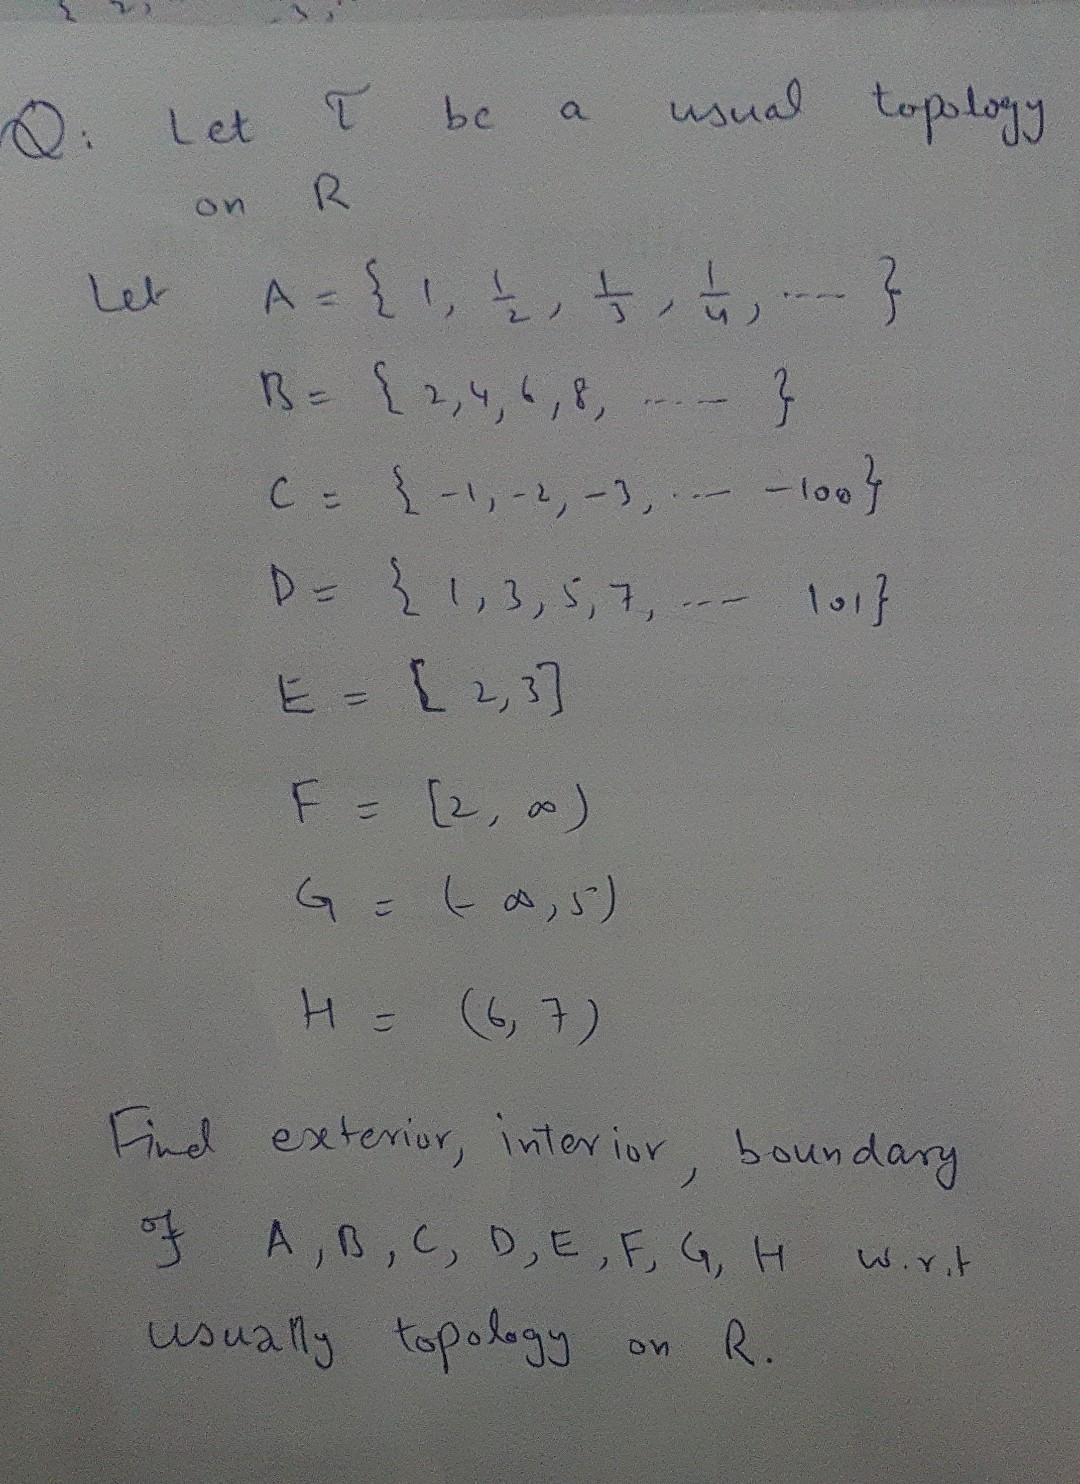 Q: Let τ be a usual topology
on R
Let A = { 1, 1/2, 1/3, 1/4, ---- }
B = { 2,4,6,8, ------ }
C = { -1, -2, -3, ---- -100}
D = { 1, 3, 5, 7, --- 101}
E = [ 2,3]
F = [2, ∞)
G = (-∞,5)
H = (6, 7)
Find exterior, interior, boundary
of A, B, C, D, E, F, G, H w.r.t
usually topology on R.